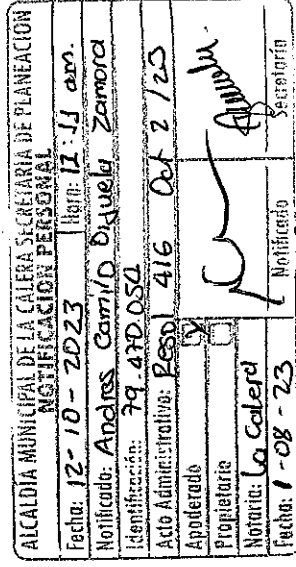 ALCALDIA MUNICIPAL DE LA CALERA SECRETARIA DE PLANEACION
NOTIFICACION PERSONAL
Fecha: 12-10-2023 Hora: 12:11 am.
Notificado: Andres Camilo Orjuela Zamora
Identificación: 79.470.052
Acto Administrativo: Resol 416 Oct 2/23
Apoderado X
Propietario
Notaria: La Calera
Fecha: 1-08-23
Notificado
Secretario